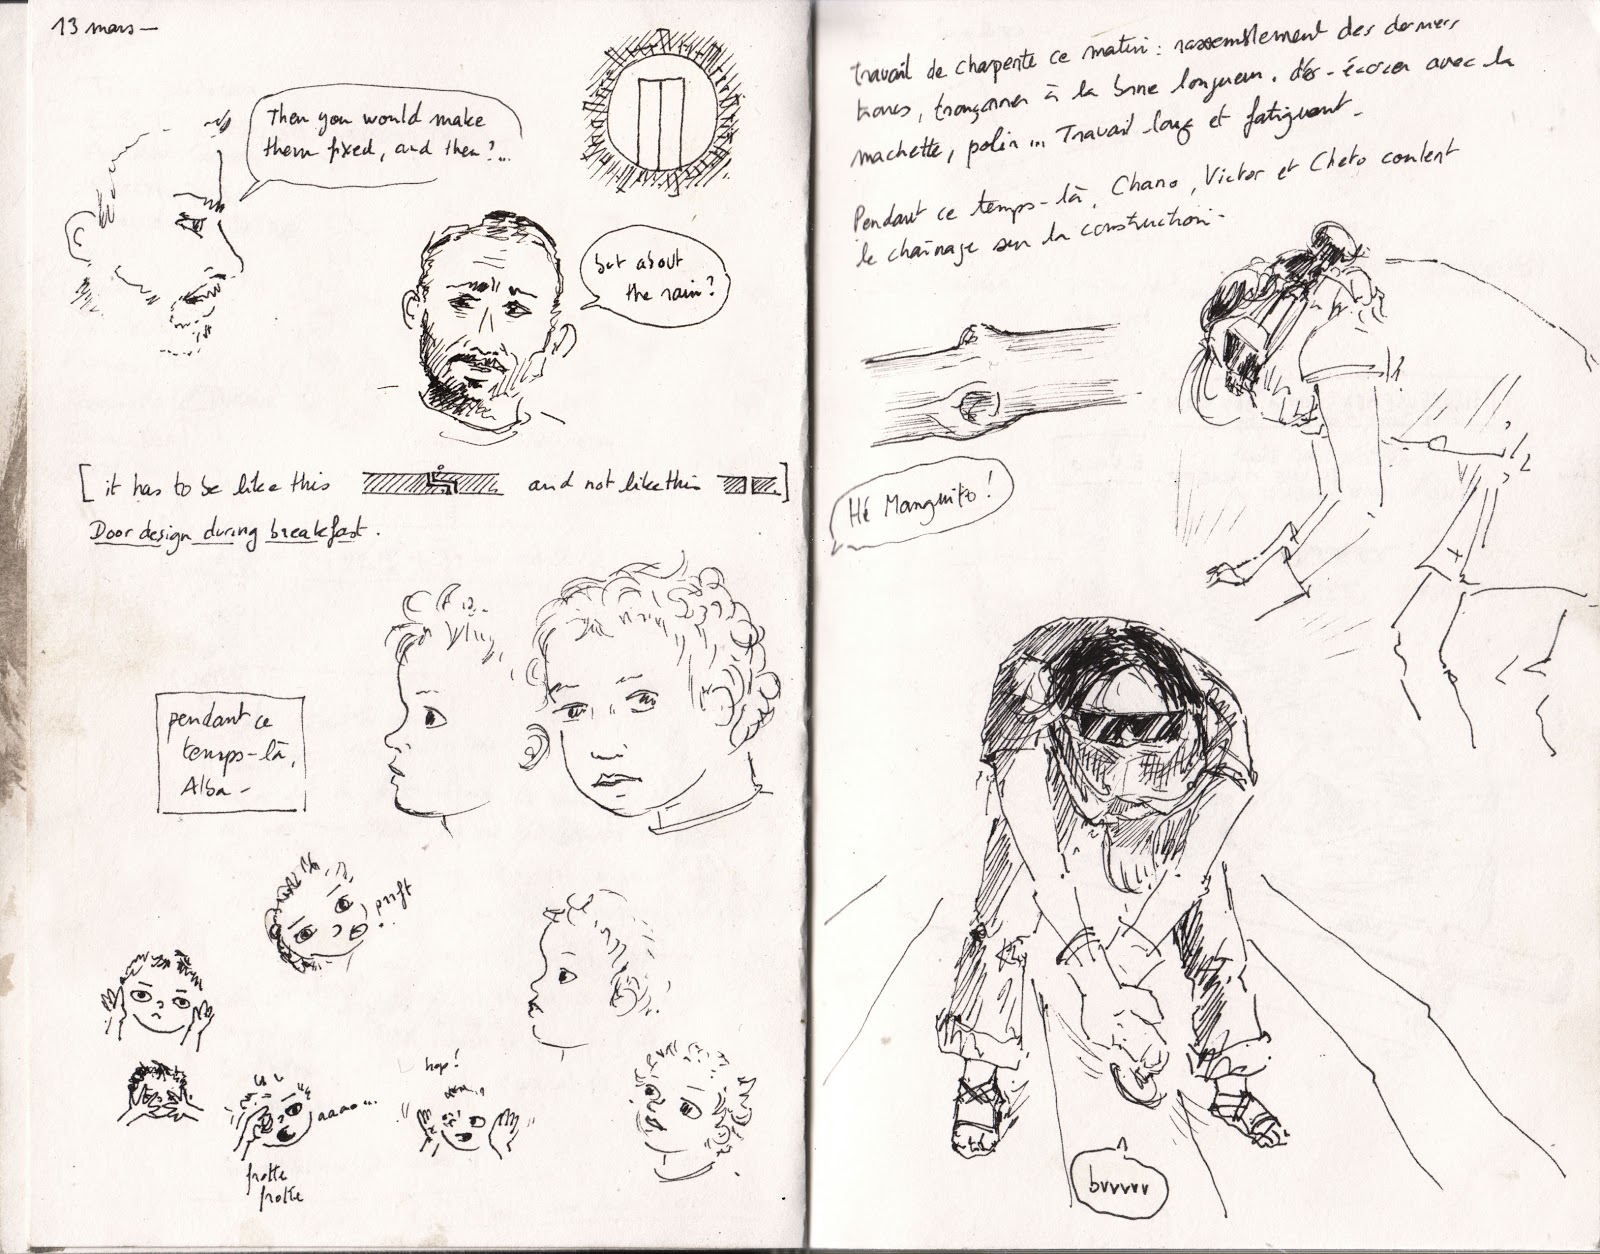 13 mars —
Then you would make
them fixed, and then?...
but about
the rain?
[ it has to be like this and not like this ]
Door design during breakfast.
pendant ce
temps-là,
Alba -
pssft
aaaa...
frotte
frotte
hop!
travail de charpente ce matin : rassemblement des derniers
troncs, tronçonner à la bonne longueur, dés-écorcer avec la
machette, polir... Travail long et fatiguant.
Pendant ce temps-là, Chano, Victor et Cheto coulent
le chaînage sur la construction -
Hé Manguito !
bvvvvv